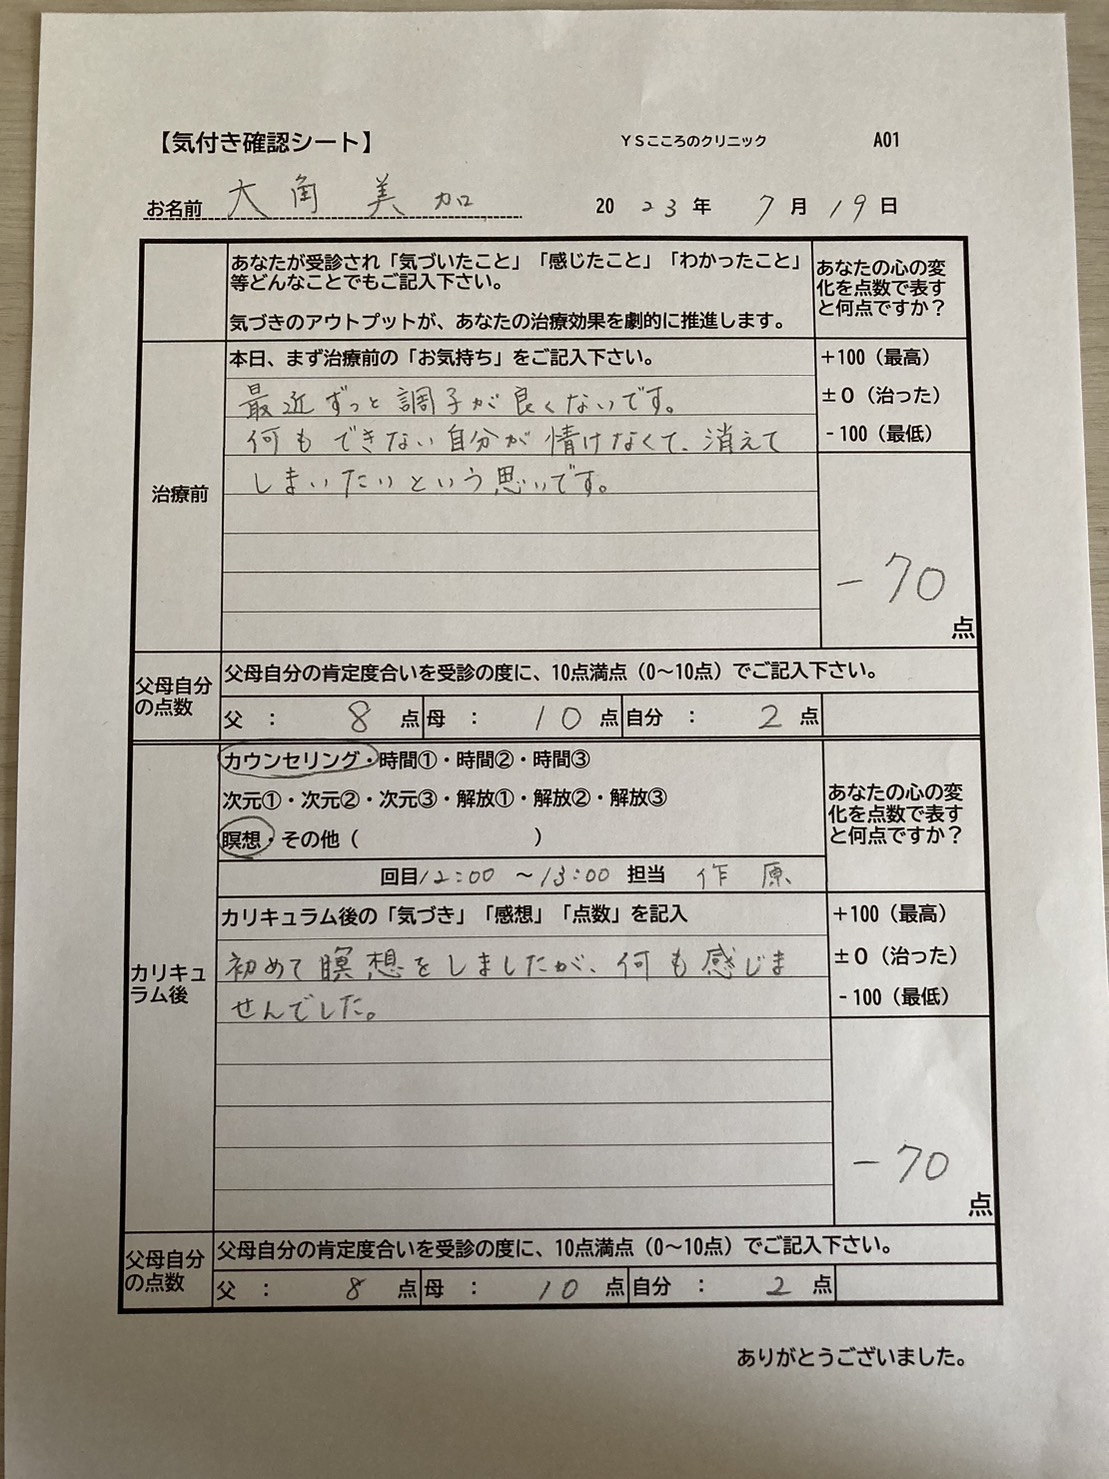 【気付き確認シート】 YSこころのクリニック A01
お名前 大角 美加 2023年 7月19日
あなたが受診され「気づいたこと」「感じたこと」「わかったこと」
等どんなことでもご記入下さい。
気づきのアウトプットが、あなたの治療効果を劇的に推進します。
あなたの心の変
化を点数で表す
と何点ですか？
治療前
本日、まず治療前の「お気持ち」をご記入下さい。
最近ずっと調子が良くないです。
何もできない自分が情けなくて、消えて
しまいたいという思いです。
+100（最高）
±0（治った）
-100（最低）
-70
点
父母自分
の点数
父母自分の肯定度合いを受診の度に、10点満点（0～10点）でご記入下さい。
父 ： 8 点 母 ： 10 点 自分 ： 2 点
カリキュ
ラム後
カウンセリング・時間①・時間②・時間③
次元①・次元②・次元③・解放①・解放②・解放③
瞑想・その他（ ）
回目 12:00 ～13:00 担当 作原
あなたの心の変
化を点数で表す
と何点ですか？
カリキュラム後の「気づき」「感想」「点数」を記入
初めて瞑想をしましたが、何も感じま
せんでした。
+100（最高）
±0（治った）
-100（最低）
-70
点
父母自分
の点数
父母自分の肯定度合いを受診の度に、10点満点（0～10点）でご記入下さい。
父 ： 8 点 母 ： 10 点 自分 ： 2 点
ありがとうございました。